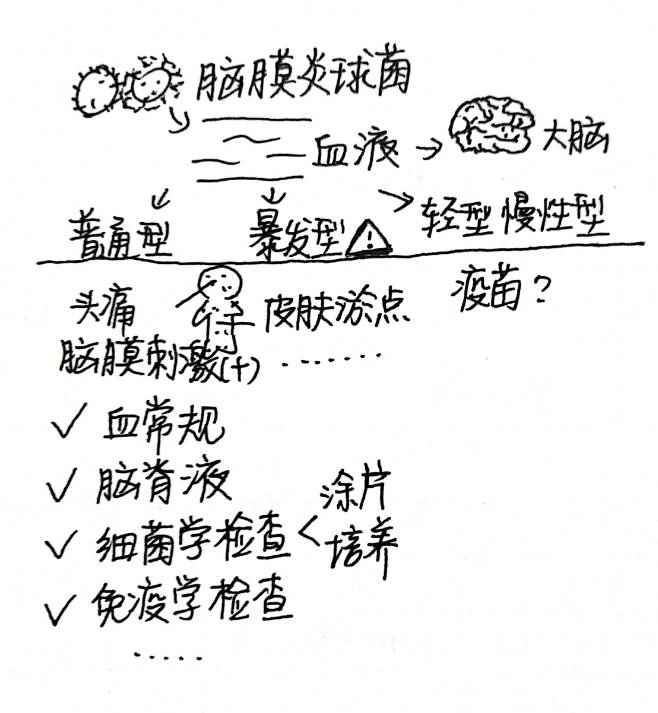 脑膜炎球菌
血液 → 大脑
普通型 暴发型 ! 轻型 慢性型
头痛 皮肤淤点 疫苗？
脑膜刺激(+) ·······
✓ 血常规
✓ 脑脊液
✓ 细菌学检查 < 涂片
培养
✓ 免疫学检查
·····